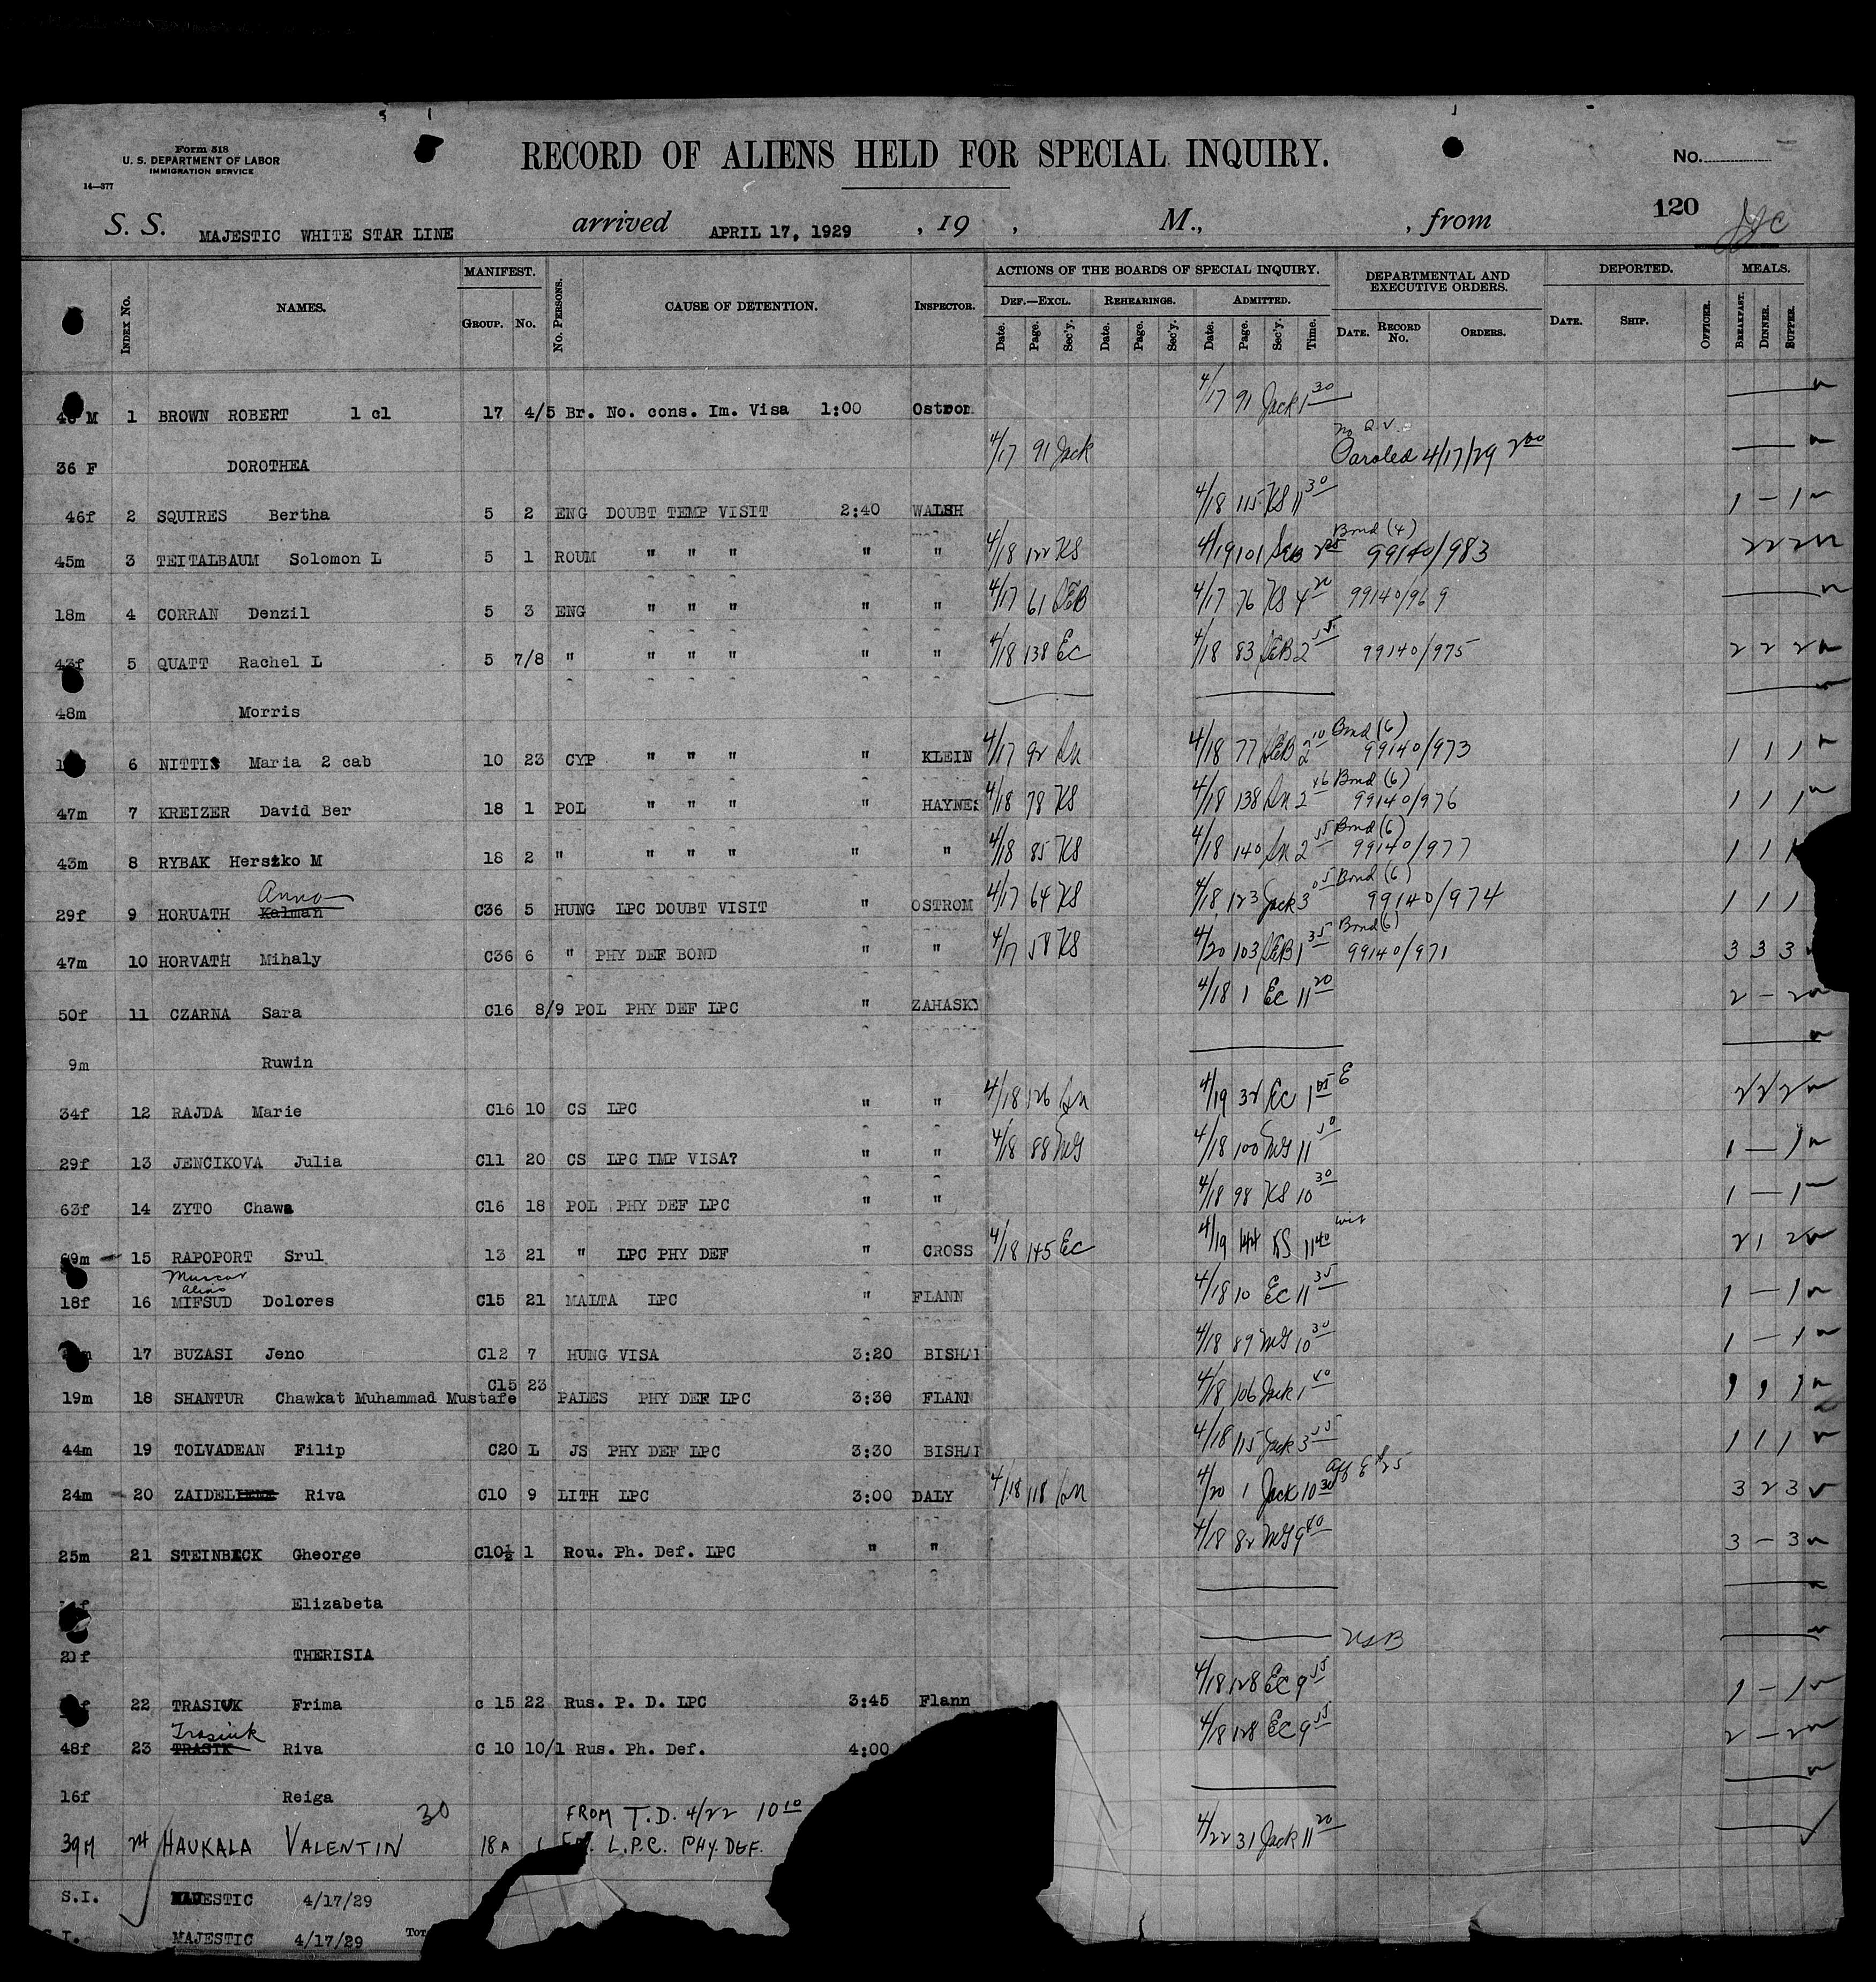 Form 518
U. S. DEPARTMENT OF LABOR
IMMIGRATION SERVICE
14—377
RECORD OF ALIENS HELD FOR SPECIAL INQUIRY.
No.
120
S. S. MAJESTIC WHITE STAR LINE arrived APRIL 17, 1929 , 19 , M., , from
MANIFEST. ACTIONS OF THE BOARDS OF SPECIAL INQUIRY. DEPARTMENTAL AND EXECUTIVE ORDERS. DEPORTED. MEALS.
Index No. NAMES. Group. No. No. Persons. CAUSE OF DETENTION. Inspector. Def.—Excl. Rehearings. Admitted.
Date. Page. Sec'y. Date. Page. Sec'y. Date. Page. Sec'y. Time. Date. Record No. Orders. Date. Ship. Officer. Breakfast. Dinner. Supper.
M 1 BROWN ROBERT 1 cl 17 4/5 Br. No. cons. Im. Visa 1:00 Ostrom 4/17 91 Jack 1 30
36 F DOROTHEA 4/17 91 Jack Paroled 4/17/29 2 00
46f 2 SQUIRES Bertha 5 2 ENG DOUBT TEMP VISIT 2:40 WALSH 4/18 115 KS 11 30 1 – 1
45m 3 TEITALBAUM Solomon L 5 1 ROUM " " " " " 4/18 122 KS 4/19 101 SEB Bond (4) 99140/983 2 2 2
18m 4 CORRAN Denzil 5 3 ENG " " " " " 4/17 61 SEB 4/17 76 KS 4 20 99140/969
43f 5 QUATT Rachel L 5 7/8 " " " " " " 4/18 138 EC 4/18 83 SEB 2 55 99140/975 2 2 2
48m Morris
6 NITTIS Maria 2 cab 10 23 CYP " " " " KLEIN 4/17 92 4/18 77 SEB 2 10 Bond (6) 99140/973 1 1 1
47m 7 KREIZER David Ber 18 1 POL " " " " HAYNES 4/18 78 KS 4/18 138 2 Bond (6) 99140/976 1 1 1
43m 8 RYBAK Herszko M 18 2 " " " " " " 4/18 85 KS 4/18 140 2 55 Bond (6) 99140/977 1 1 1
Anna
29f 9 HORUATH Kalman C36 5 HUNG LPC DOUBT VISIT " OSTROM 4/17 64 KS 4/18 123 Jack 3 05 Bond (6) 99140/974 1 1 1
47m 10 HORVATH Mihaly C36 6 " PHY DEF BOND " " 4/17 58 KS 4/20 103 SEB 1 35 Bond (6) 99140/971 3 3 3
50f 11 CZARNA Sara C16 8/9 POL PHY DEF LPC " ZAHASKY 4/18 1 EC 11 20 2 – 2
9m Ruwin
34f 12 RAJDA Marie C16 10 CS LPC " " 4/18 126 4/19 32 EC 1 E 2 2 2
29f 13 JENCIKOVA Julia C11 20 CS LPC IMP VISA? " " 4/18 88 MG 4/18 100 MG 11 50 1 — 1
63f 14 ZYTO Chawa C16 18 POL PHY DEF LPC " " 4/18 98 KS 10 30 1 — 1
69m 15 RAPOPORT Srul 13 21 " LPC PHY DEF " CROSS 4/18 145 EC 4/19 144 KS 11 40 wit 2 1 2
alias
18f 16 MIFSUD Dolores C15 21 MALTA LPC " FLANN 4/18 10 EC 11 35 1 – 1
17 BUZASI Jeno C12 7 HUNG VISA 3:20 BISHA 4/18 89 MG 10 30 1 – 1
C15 23
19m 18 SHANTUR Chawkat Muhammad Mustafe PALES PHY DEF LPC 3:30 FLANN 4/18 106 Jack 1 40 1 1 1
44m 19 TOLVADEAN Filip C20 L JS PHY DEF LPC 3:30 BISHA 4/18 115 Jack 3 55 1 1 1
24m 20 ZAIDELIENE Riva C10 9 LITH LPC 3:00 DALY 4/18 118 4/20 1 Jack 10 30 3 2 3
25m 21 STEINBECK Gheorge C10½ 1 Rou. Ph. Def. LPC " " 4/18 82 MG 9 40 3 – 3
Elizabeta
20f THERISIA USB
22 TRASIUK Frima c 15 22 Rus. P. D. LPC 3:45 Flann 4/18 128 EC 9 55 1 – 1
Trasiuk
48f 23 TRASIK Riva C 10 10/1 Rus. Ph. Def. 4:00 4/18 128 EC 9 55 2 – 2
16f Reiga
30 FROM T.D. 4/22 10 10
39M 24 HAUKALA VALENTIN 18A 1 L.P.C. PHY. DEF. 4/22 31 Jack 11 20
S.I. MAJESTIC 4/17/29
MAJESTIC 4/17/29